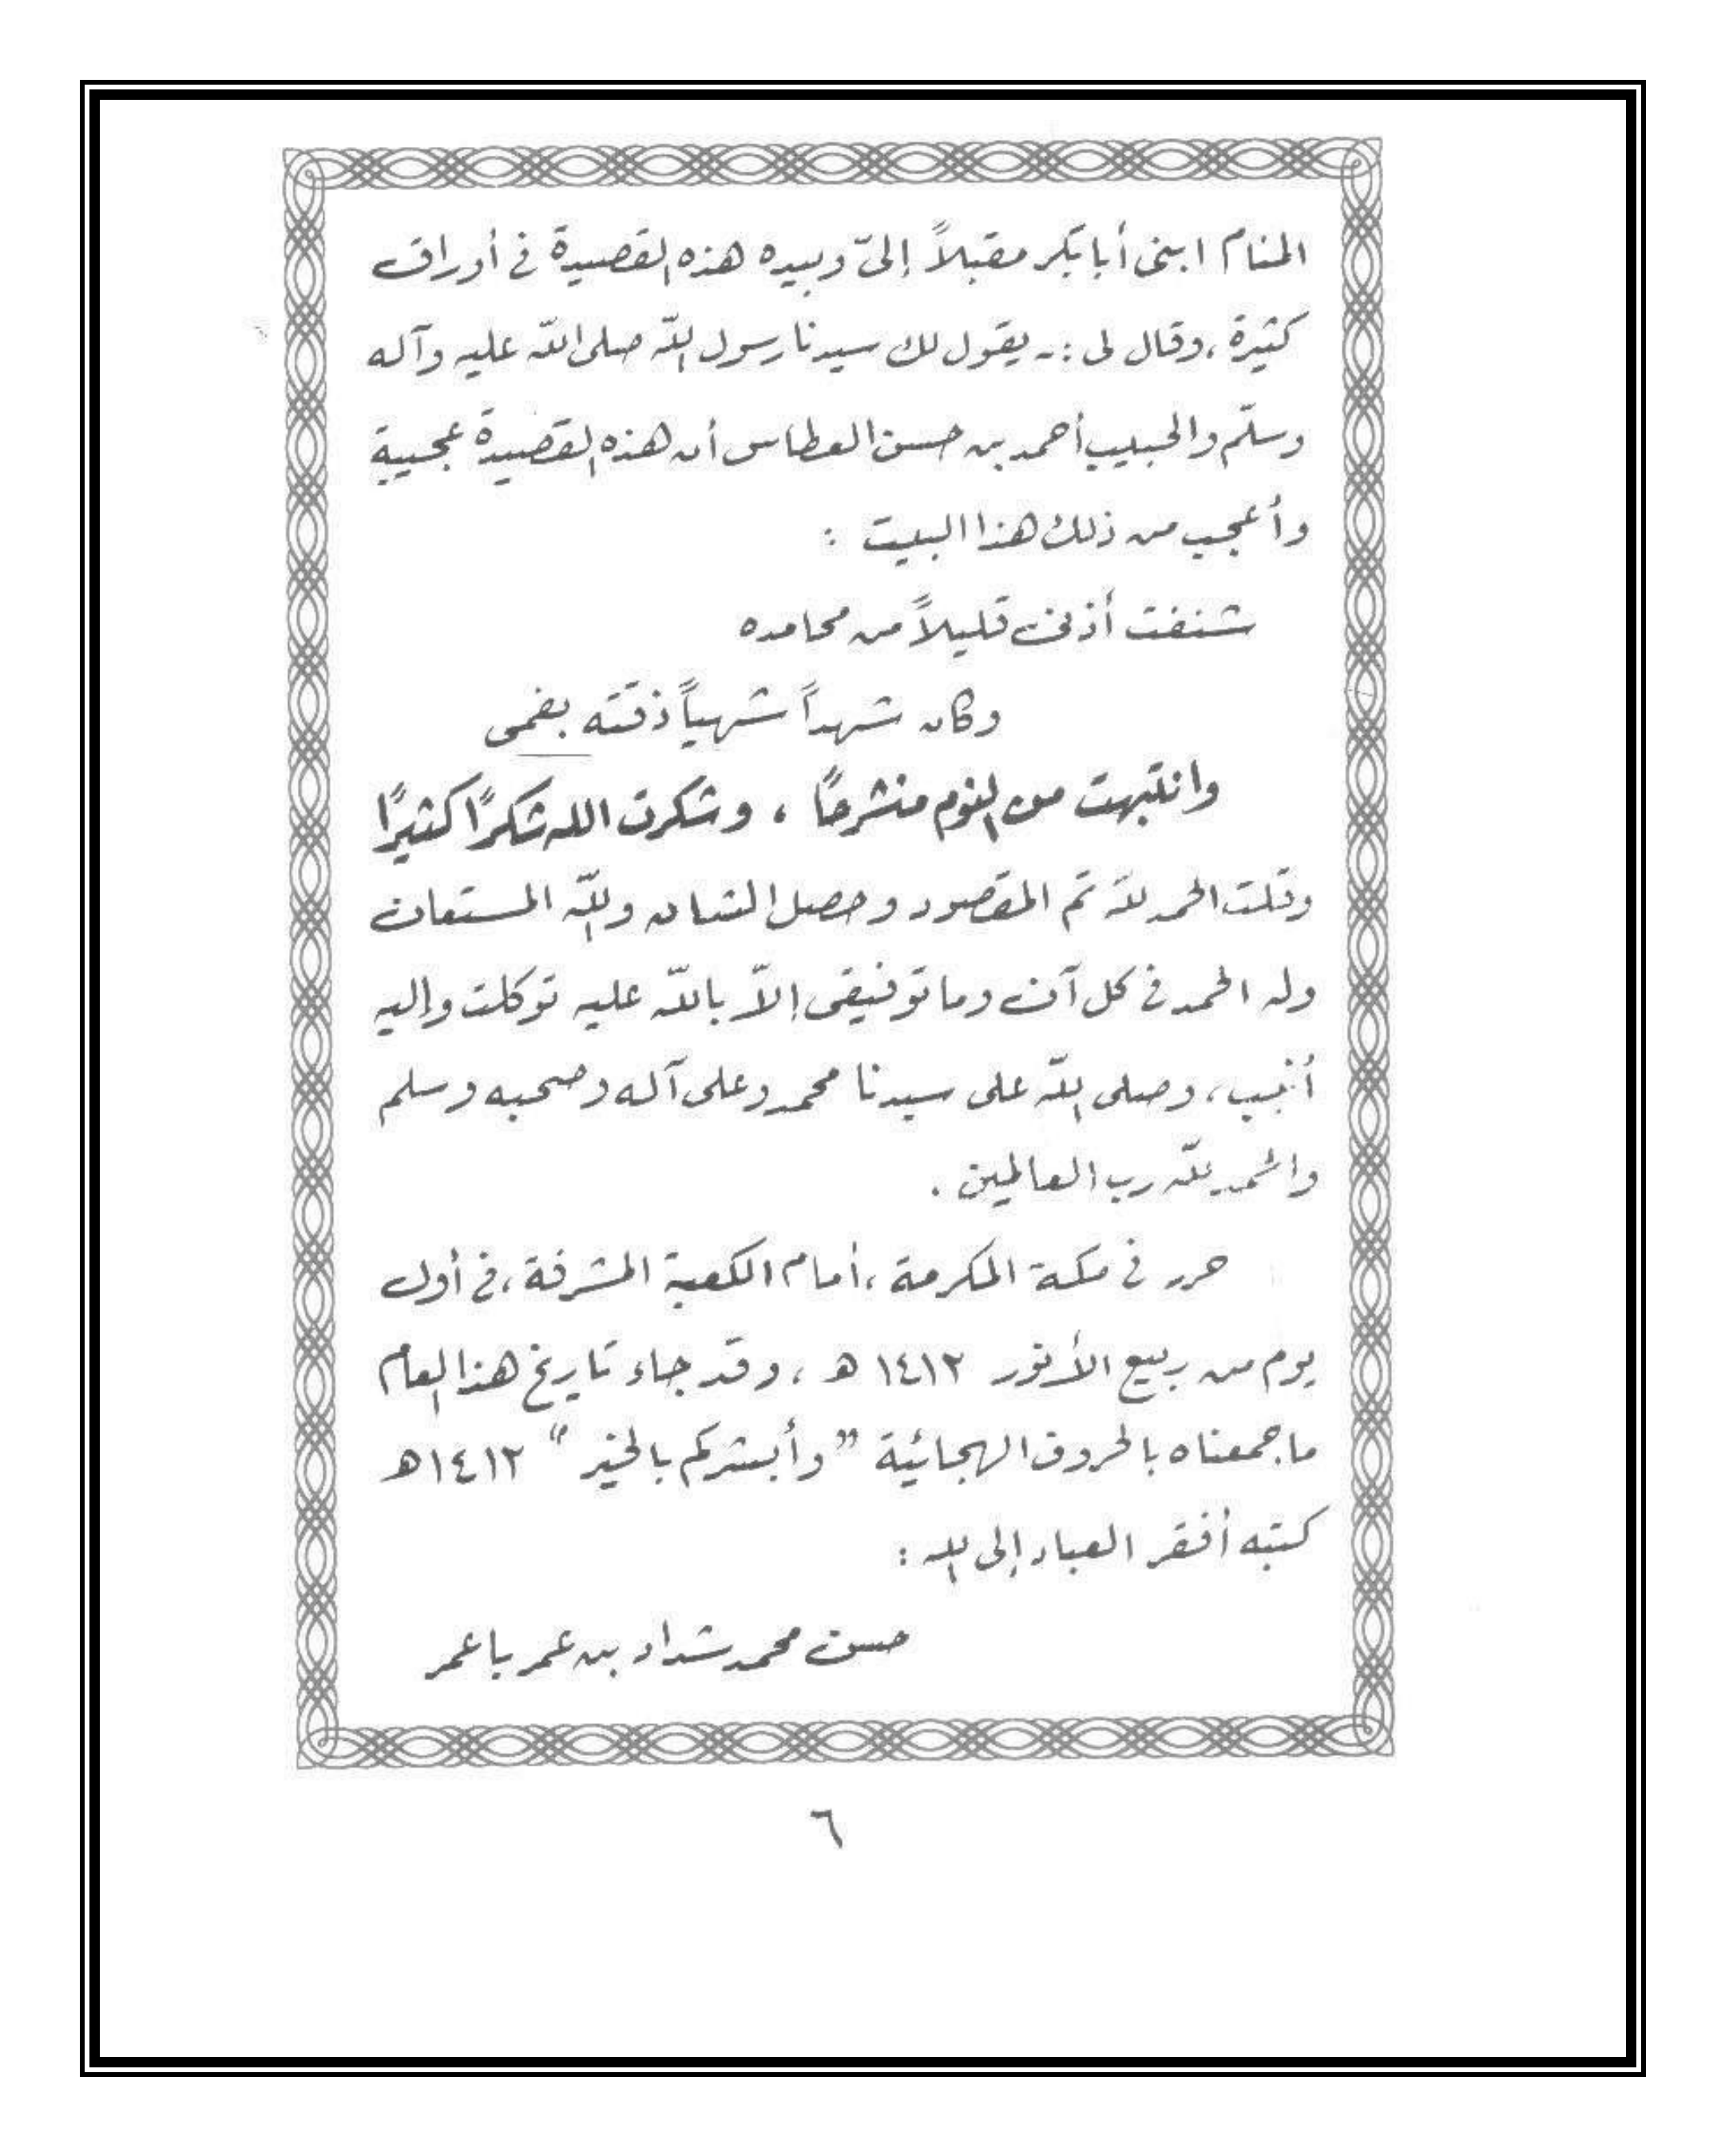 المنام ابني أبا بكر مقبلاً إليّ وبيده هذه القصيدة في أوراق
كثيرة ، وقال لى :- يقول لك سيدنا رسول الله صلى الله عليه وآله
وسلّم والحبيب أحمد بن حسن العطاس أن هذه القصيدة عجيبة
وأعجب من ذلك هذا البيت :
شنفت أذني قليلاً من محامده
وكان شهداً شهياً ذقته بفمى
وانتبهت من النوم منشرحًا ، وشكرت الله شكرًا كثيرًا
وقلت الحمد لله تم المقصود وحصل الشان والله المستعان
وله الحمد في كل آن وما توفيقى إلاّ بالله عليه توكلت وإليه
أنيب ، وصلى الله على سيدنا محمد وعلى آله وصحبه وسلم
والحمد لله رب العالمين .
حرر في مكة المكرمة ، أمام الكعبة المشرفة ، في أول
يوم من ربيع الأنور ١٤١٢ هـ ، وقد جاء تاريخ هذا العام
ما جمعناه بالحروف الهجائية " وأبشركم بالخير " ١٤١٢هـ
كتبه أفقر العباد إلى الله :
حسن محمد شداد بن عمر باعمر
٦